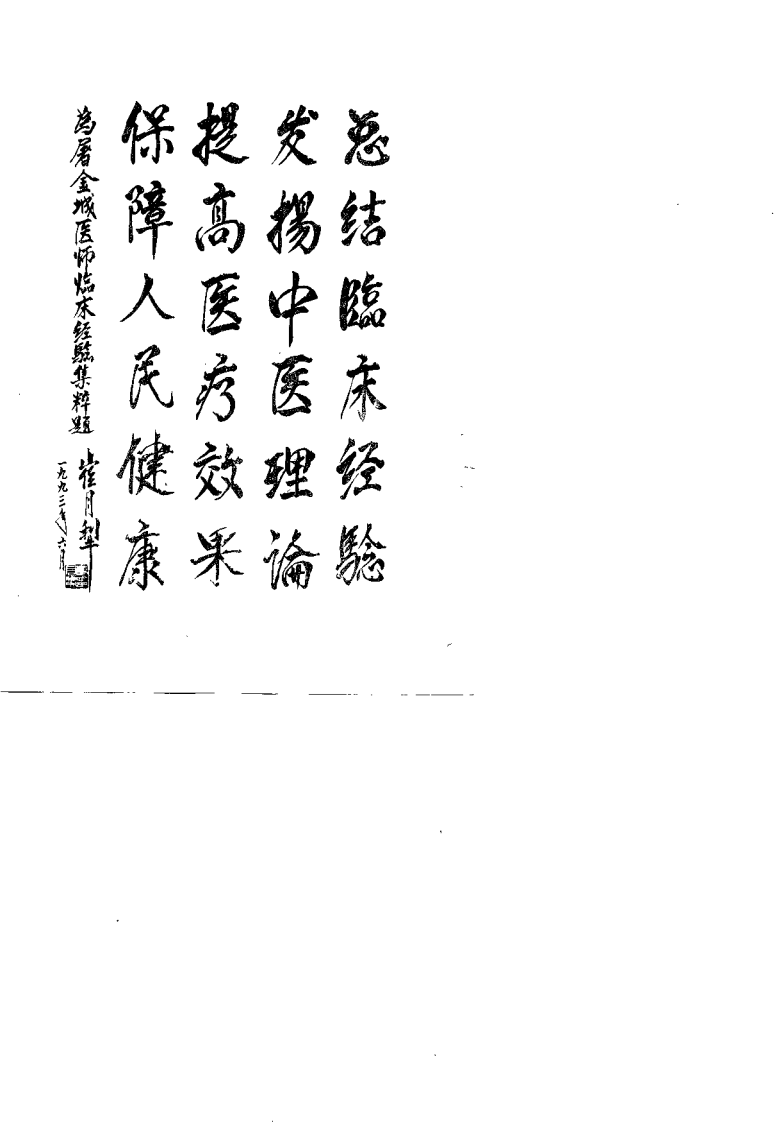 总结臨床经驗
发揚中医理論
提高医疗效果
保障人民健康
為屠金城医师临床经验集粹題
崔月犁
一九九三年六月